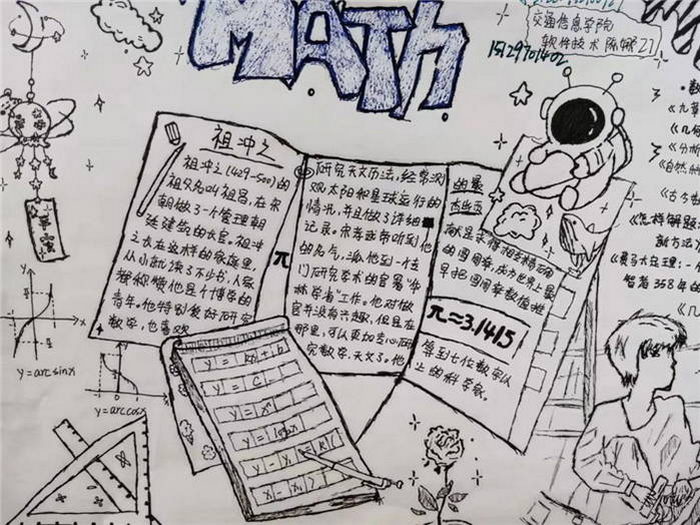 MATH
交通信息学院
软件技术 陈娜 27
15129701402
祖冲之
祖冲之(429-500)的
祖父名叫祖昌,在宋
朝做了一个管理朝
廷建筑的长官。祖冲
之长在这样的家庭里,
从小就读了不少书,人家
都称赞他是个博学的
青年。他特别爱好研究
数学,也喜欢
π
研究天文历法,经常观
观太阳和星球运行的
情况,并且做了详细
记录。宋孝武帝听到他
的名气,派他到一个
门研究学术的官署"华
林学省"工作。他对做
官并没有兴趣,但是在
那里,可以更加专心研
究数学、天文了。他
的最
杰出贡
献是求得相当精确
的圆周率,成为世界上最
早把圆周率数值推
π≈3.1415
算到七位数字以
上的科学家。
y=arcsinx
y=arccosx
y = kx + b
y = c
《九章
《几何
《分析
自然
《古今
《怎样解题:
新方法
《费马大定理:一
智者358年的
《几